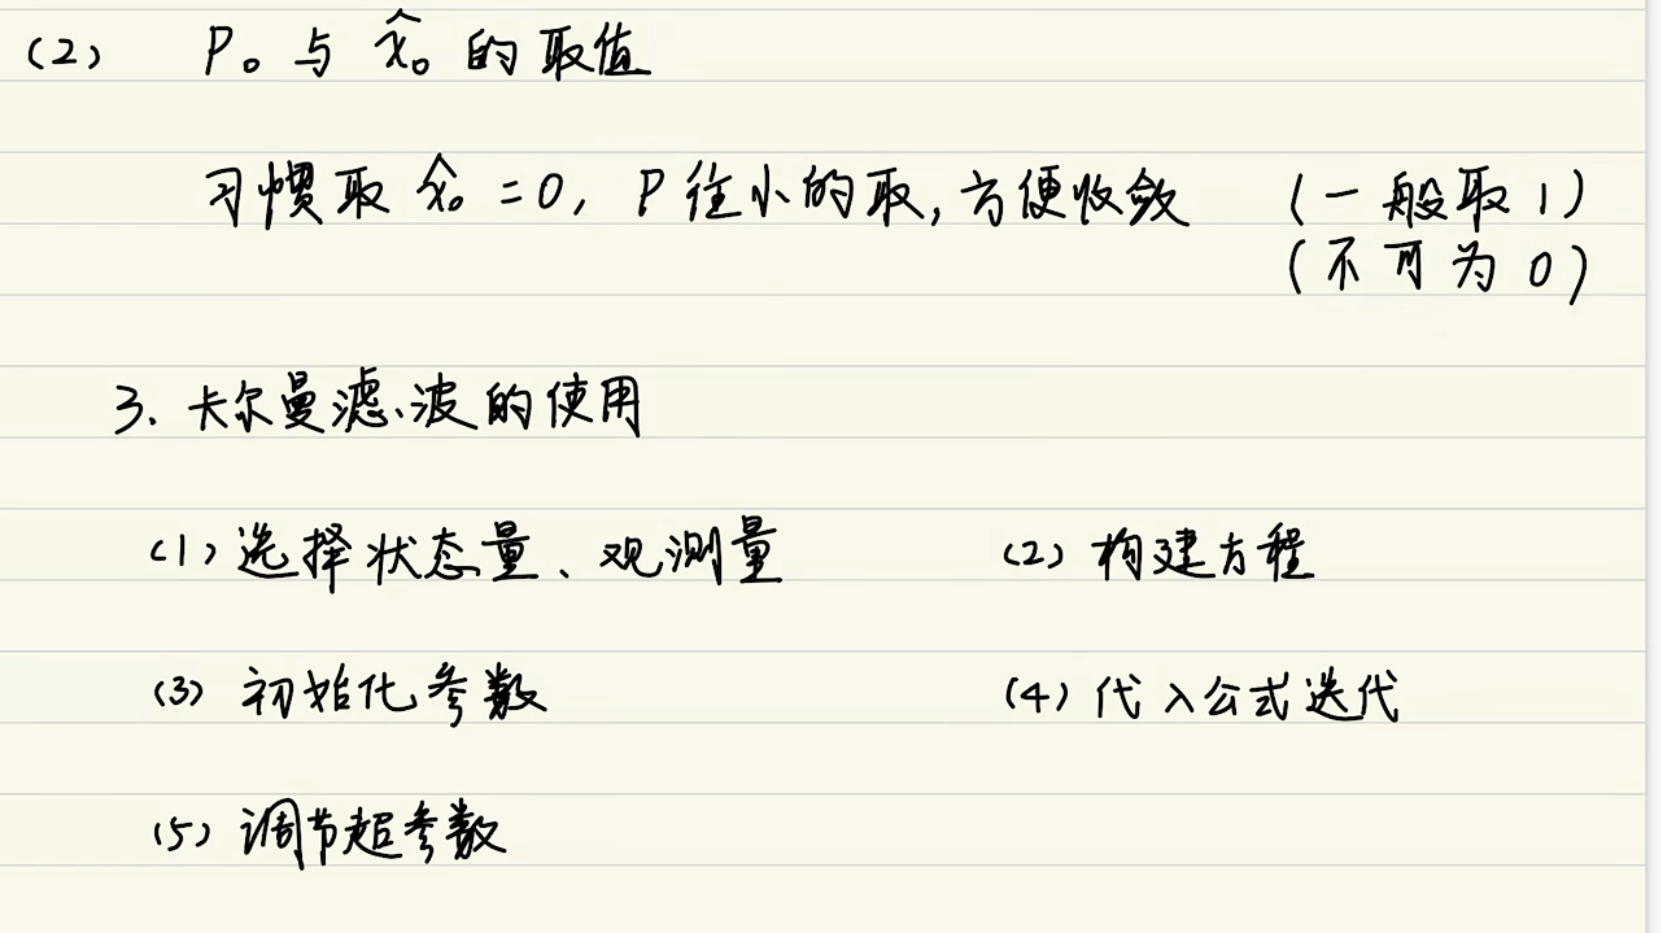 (2) P₀ 与 x̂₀ 的取值
习惯取 x̂₀ = 0, P往小的取, 方便收敛 (一般取1)
(不可为0)
3. 卡尔曼滤波的使用
(1) 选择状态量、观测量 (2) 构建方程
(3) 初始化参数 (4) 代入公式迭代
(5) 调节超参数